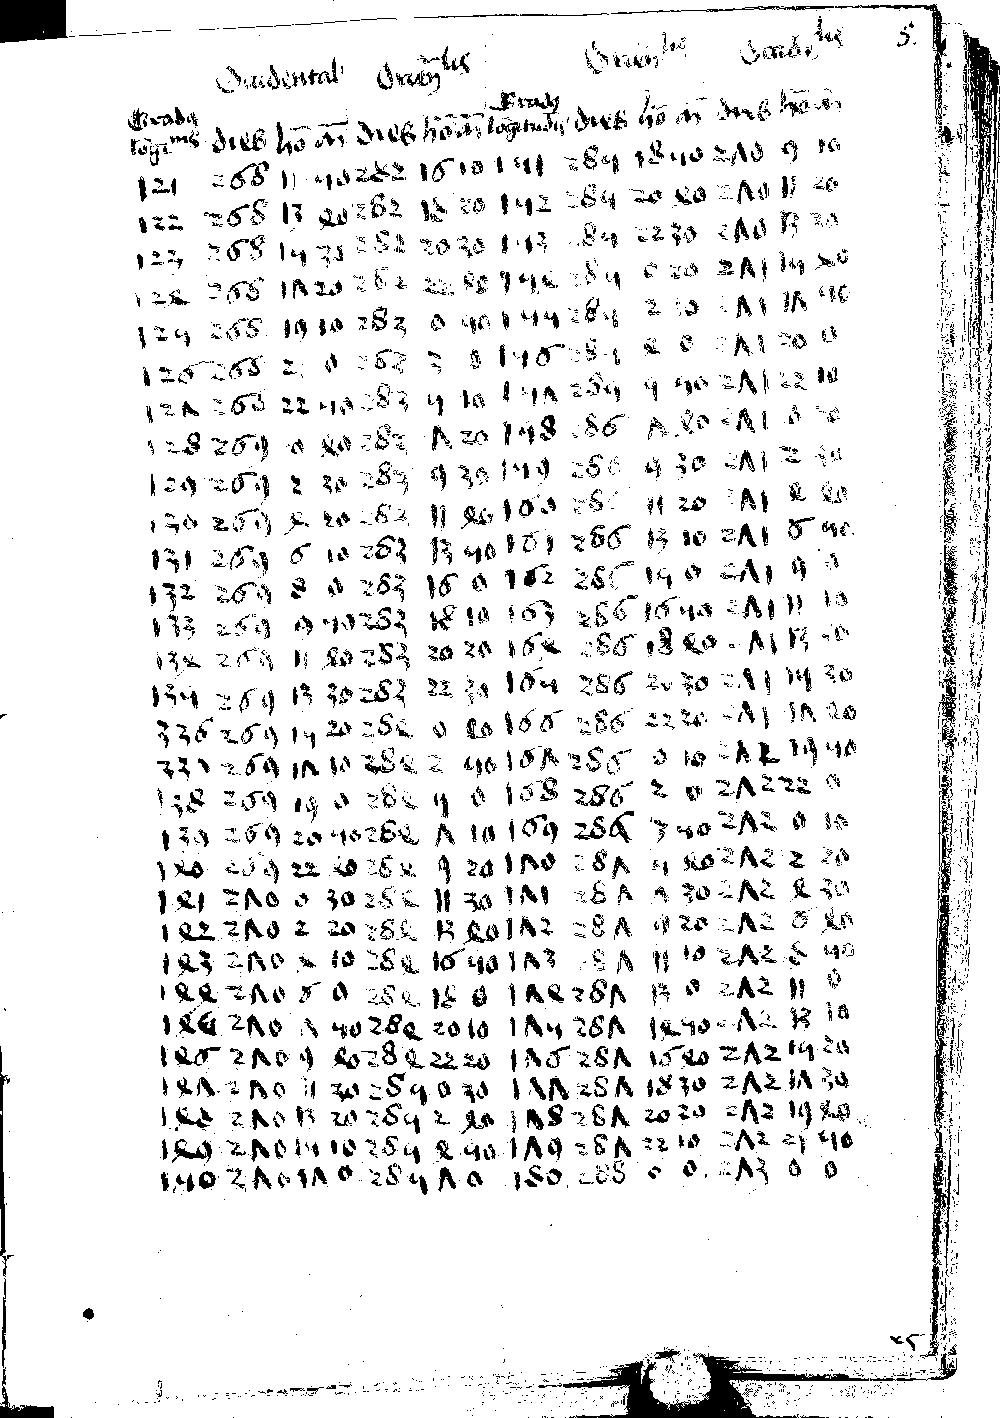 5.
Occidental' Orienlis Orienlis Occidlis
Gradus longitudinis dies ho m dies ho m Gradus longitudinis dies ho m dies ho m
121 268 11 50 282 16 10 151 285 18 50 270 9 10
122 268 13 40 282 18 20 152 285 20 40 270 11 20
123 268 15 30 282 20 30 153 285 22 30 270 13 20
124 268 17 20 282 22 40 154 285 0 20 271 15 40
125 268 19 10 283 0 50 155 285 2 10 271 17 50
126 268 21 0 283 3 0 156 285 4 0 271 20 0
127 268 22 50 283 5 10 157 285 5 50 271 22 10
128 269 0 40 283 7 20 158 286 7 40 271 0 20
129 269 2 30 283 9 30 159 286 9 30 271 2 30
130 269 4 20 283 11 40 160 286 11 20 271 4 40
131 269 6 10 283 13 50 161 286 13 10 271 6 50
132 269 8 0 283 16 0 162 286 15 0 271 9 0
133 269 9 50 283 18 10 163 286 16 50 271 11 10
134 269 11 40 283 20 20 164 286 18 40 271 13 20
135 269 13 30 283 22 30 165 286 20 30 271 15 30
336 269 15 20 284 0 40 166 286 22 20 271 17 40
337 269 17 10 284 2 50 167 286 0 10 272 19 50
138 269 19 0 284 5 0 168 286 2 0 272 22 0
139 269 20 50 284 7 10 169 286 3 50 272 0 10
140 269 22 40 284 9 20 170 287 5 40 272 2 20
141 270 0 30 284 11 30 171 287 7 30 272 4 30
142 270 2 20 284 13 40 172 287 9 20 272 6 40
143 270 4 10 284 16 50 173 287 11 10 272 8 50
144 270 6 0 284 18 0 174 287 13 0 272 11 0
145 270 7 50 284 20 10 175 287 14 50 272 13 10
146 270 9 40 284 22 20 176 287 16 40 272 15 20
147 270 11 30 285 0 30 177 287 18 30 272 17 30
148 270 13 20 285 2 40 178 287 20 20 272 19 40
149 270 15 10 285 4 50 179 287 22 10 272 21 50
150 270 17 0 285 7 0 180 288 0 0 273 0 0